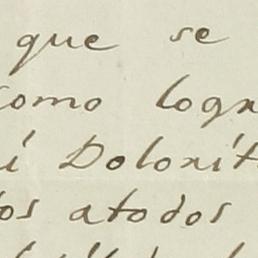 que se
como logr
i Dolorit
os atodos